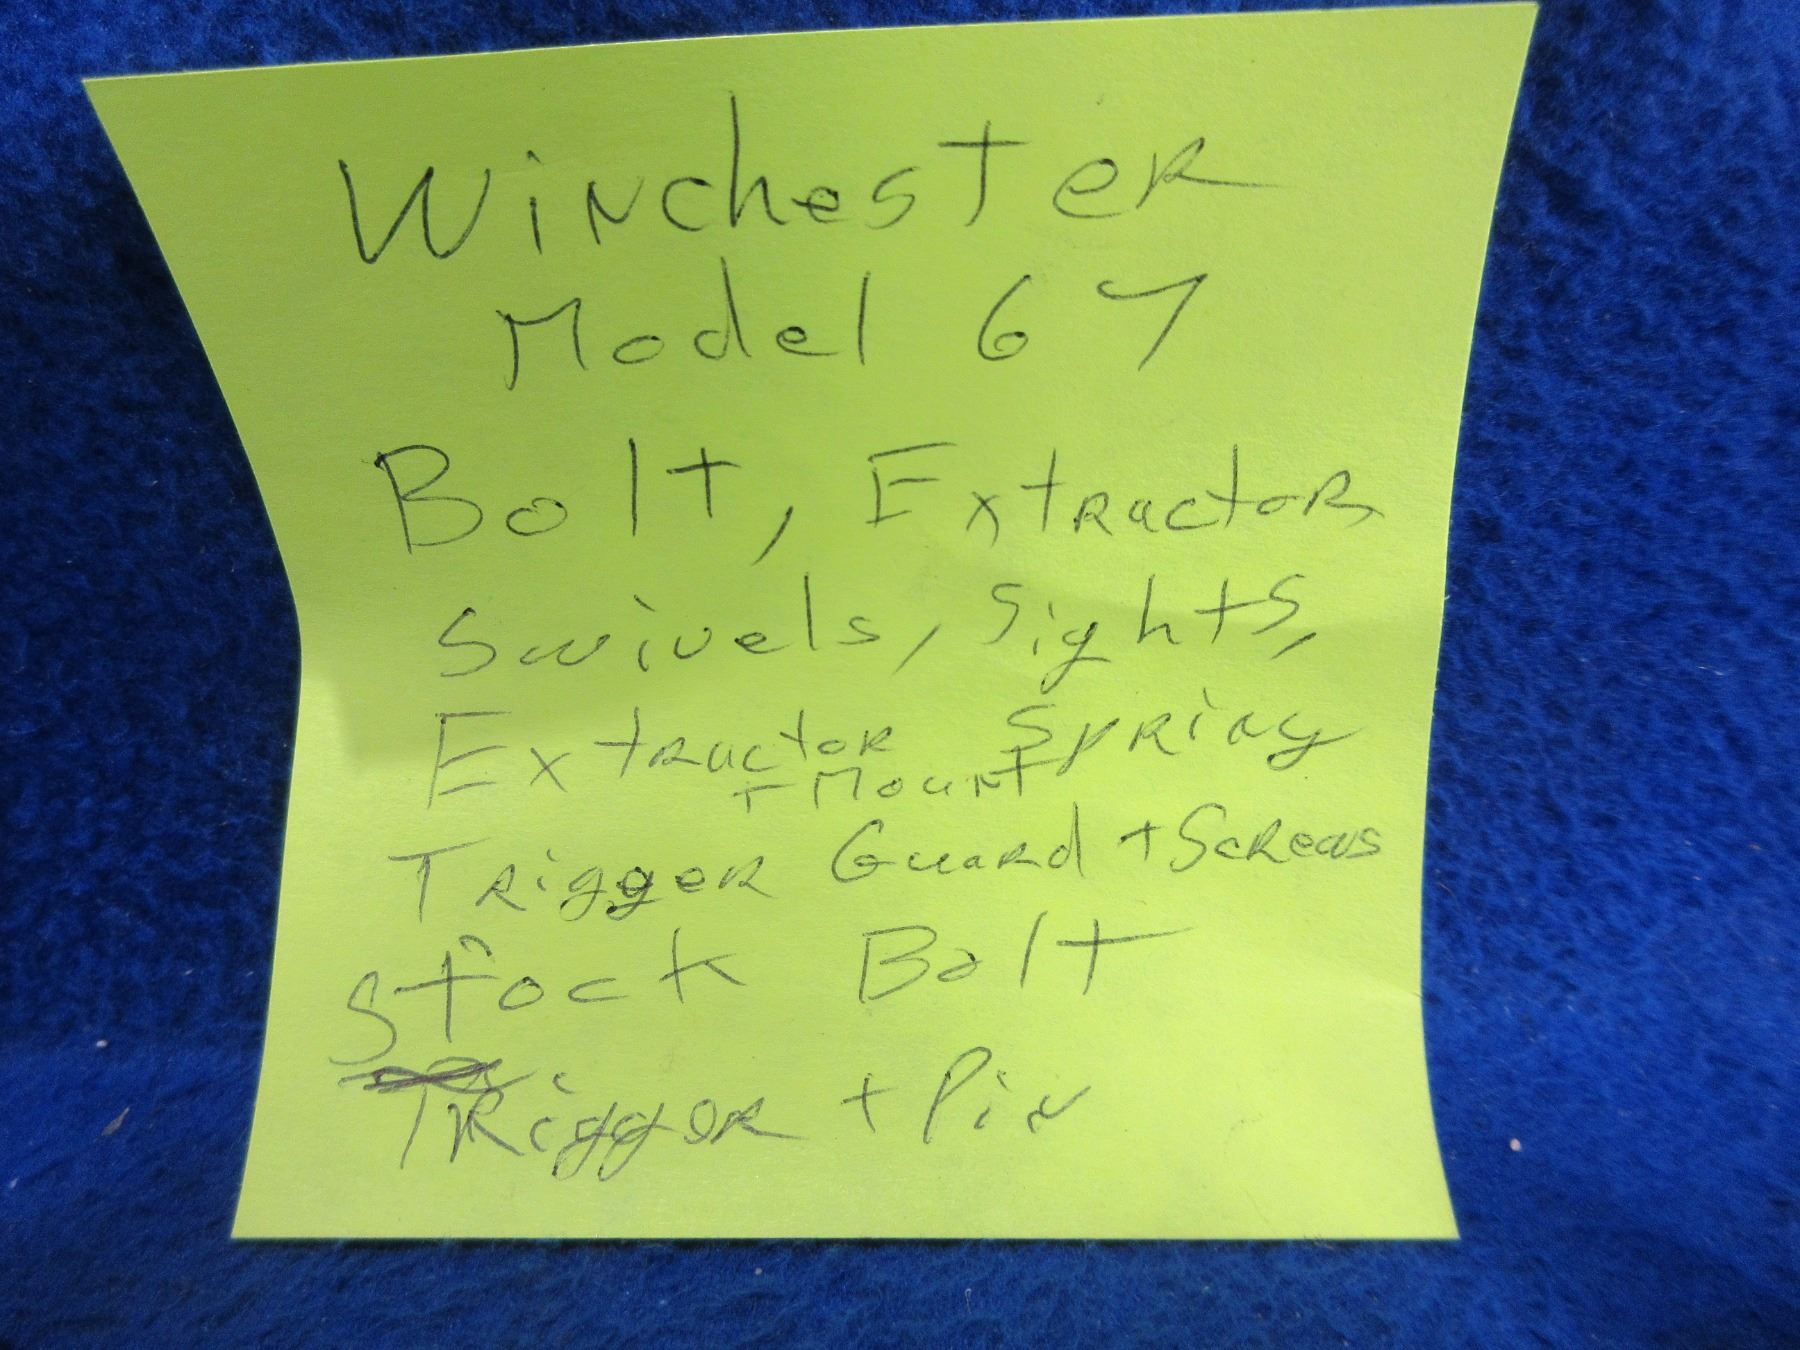 Winchester
Model 67
Bolt, Extractor
Swivels, Sights,
Extractor Spring
+ Mount
Trigger Guard + Screws
Stock Bolt
Trigger + Pin